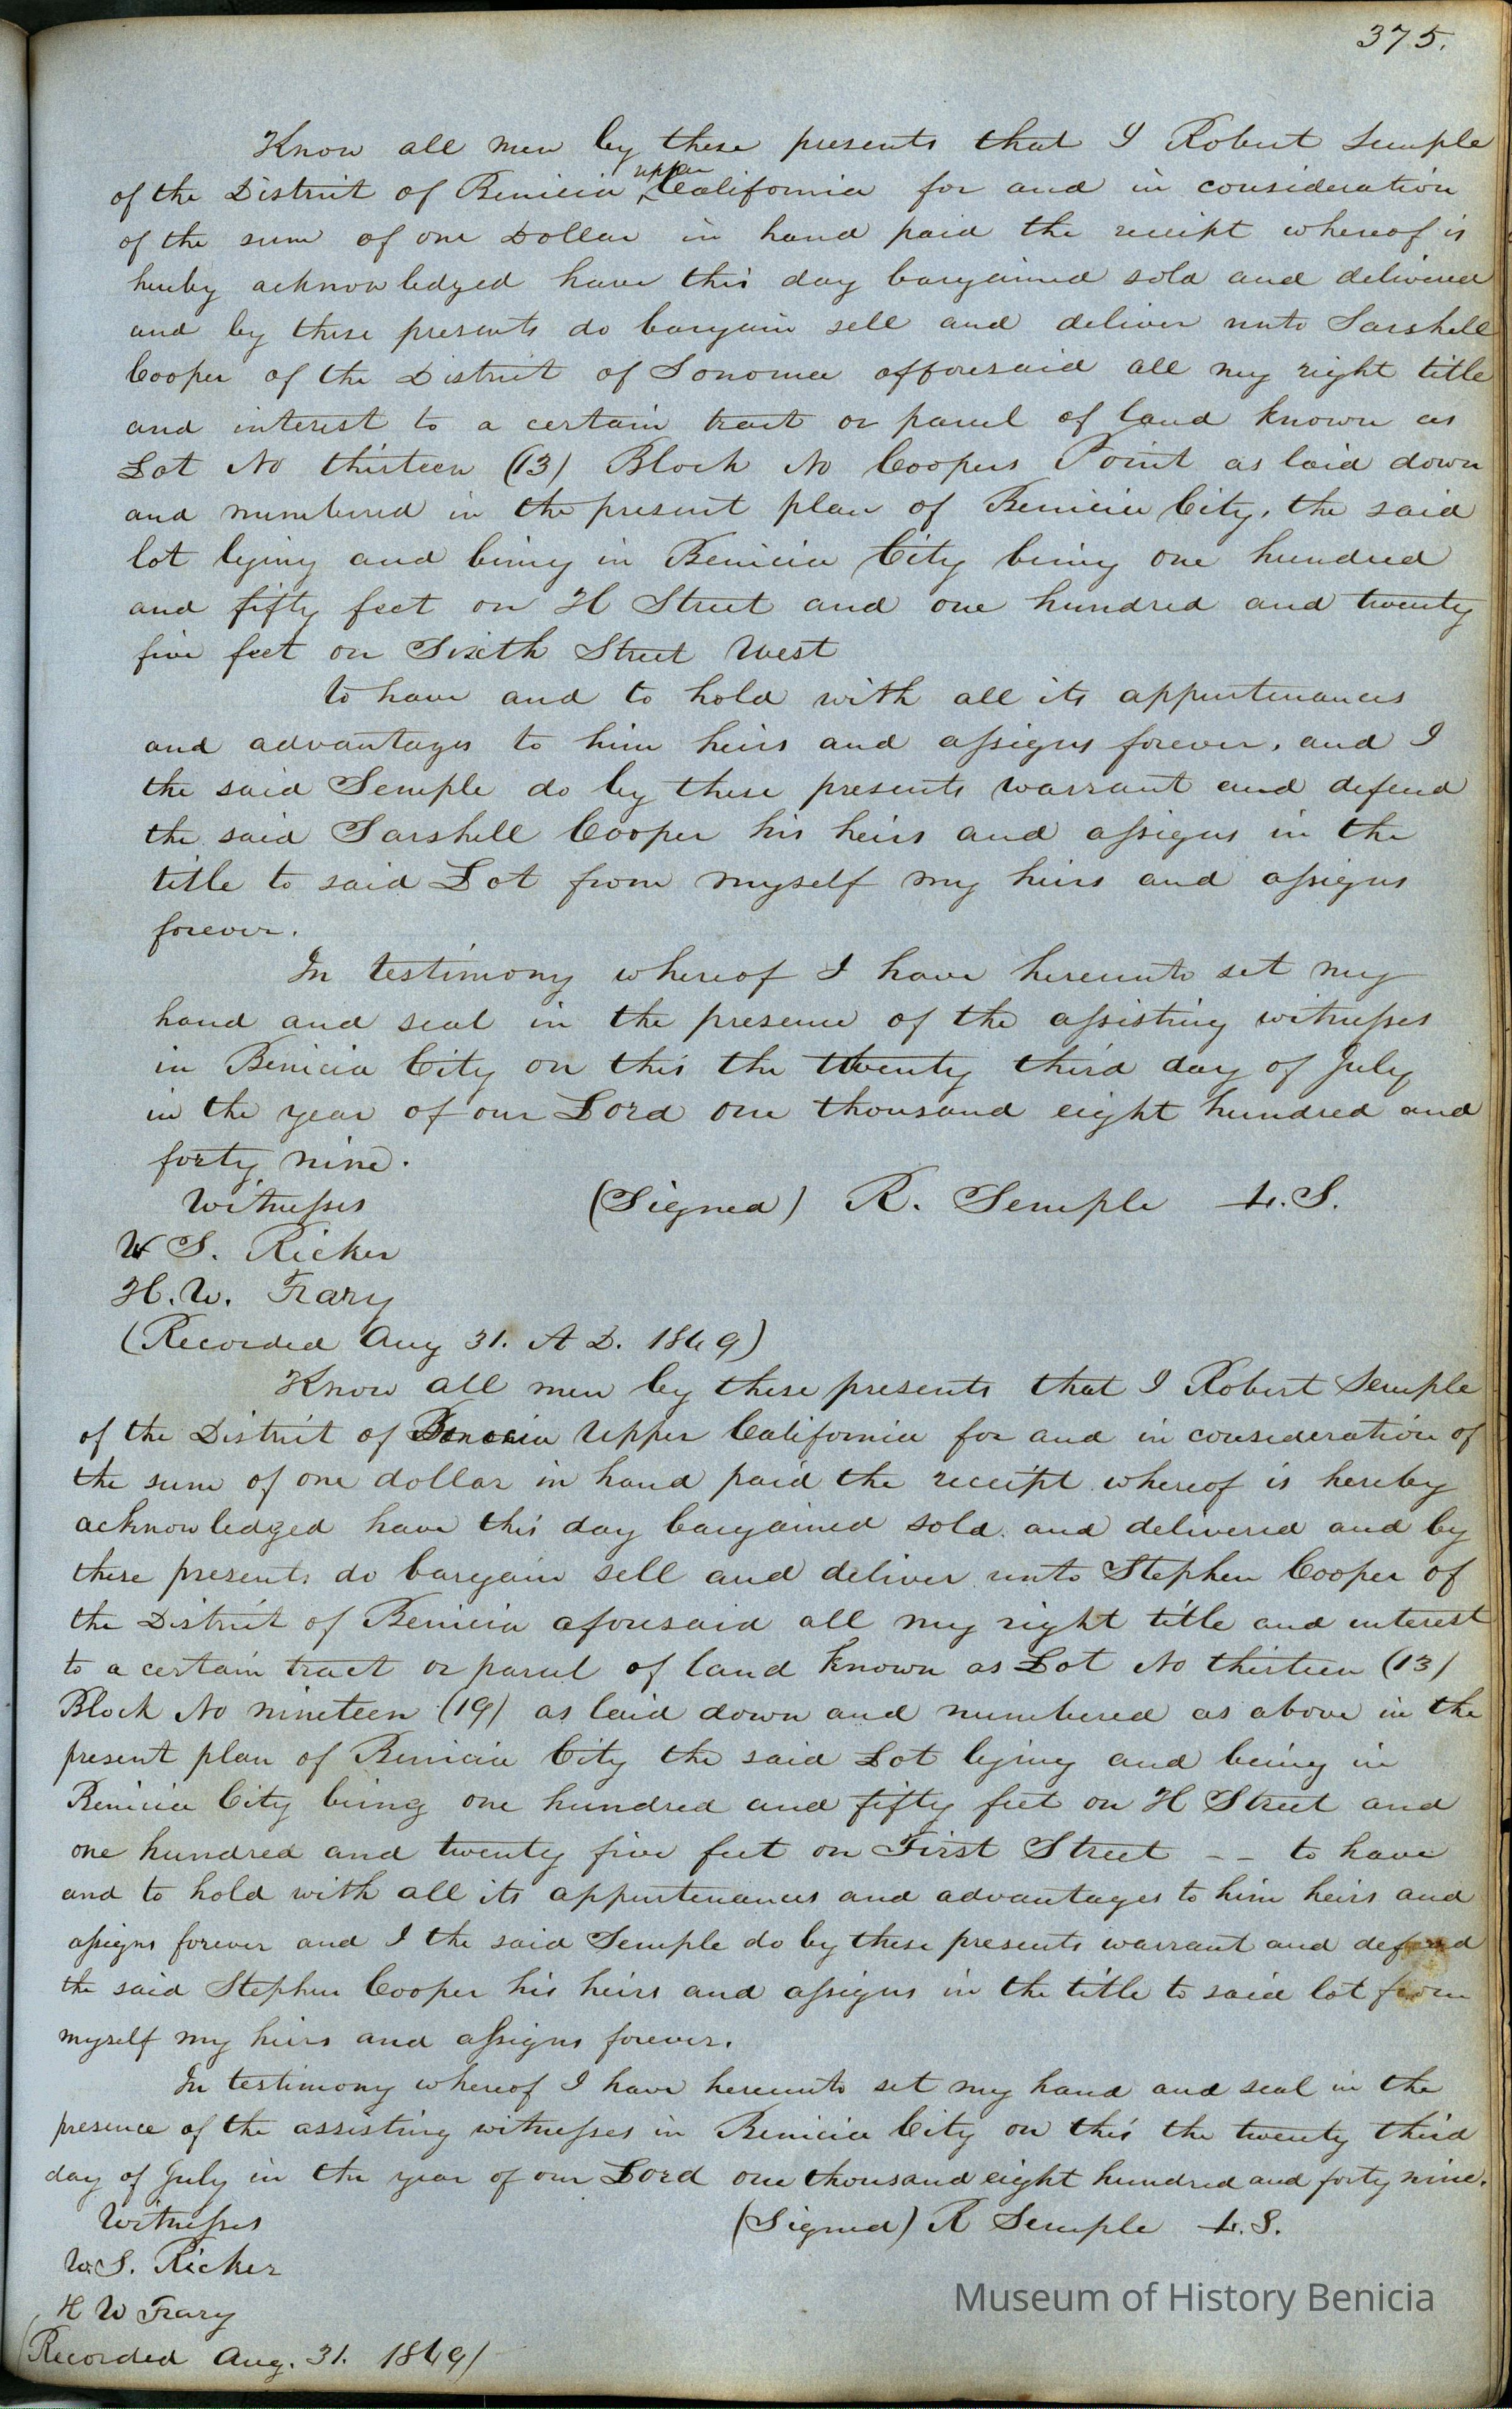 375.
Know all men by these presents that I Robert Semple
of the District of Benicia ^upper California for and in consideration
of the sum of one Dollar in hand paid the receipt whereof is
hereby acknowledged have this day bargained sold and delivered
and by these presents do bargain sell and deliver unto Sarshell
Cooper of the District of Sonoma afforesaid all my right title
and interest to a certain tract or parcel of land known as
Lot No thirteen (13) Block No Coopers Point as laid down
and numbered in the present plan of Benicia City, the said
lot lying and being in Benicia City being one hundred
and fifty feet on H Street and one hundred and twenty
five feet on Sixth Street West
to have and to hold with all its appurtenances
and advantages to him heirs and assigns forever, and I
the said Semple do by these presents warrant and defend
the said Sarshell Cooper his heirs and assigns in the
title to said Lot from myself my heirs and assigns
forever.
In testimony whereof I have hereunto set my
hand and seal in the presence of the assisting witnesses
in Benicia City on this the twenty third day of July
in the year of our Lord one thousand eight hundred and
forty nine.
Witnesses (Signed) R. Semple L.S.
W S. Ricker
H. W. Frary
(Recorded Aug 31. A D. 1849)
Know all men by these presents that I Robert Semple
of the District of Benicia Upper California for and in consideration of
the sum of one dollar in hand paid the receipt whereof is hereby
acknowledged have this day bargained sold and delivered and by
these presents do bargain sell and deliver unto Stephen Cooper of
the District of Benicia aforesaid all my right title and interest
to a certain tract or parcel of land known as Lot No thirteen (13)
Block No nineteen (19) as laid down and numbered as above in the
present plan of Benicia City the said Lot lying and being in
Benicia City being one hundred and fifty feet on H Street and
one hundred and twenty five feet on First Street -- to have
and to hold with all its appurtenances and advantages to him heirs and
assigns forever and I the said Semple do by these presents warrant and defend
the said Stephen Cooper his heirs and assigns in the title to said lot from
myself my heirs and assigns forever.
In testimony whereof I have hereunto set my hand and seal in the
presence of the assisting witnesses in Benicia City on this the twenty third
day of July in the year of our Lord one thousand eight hundred and forty nine.
Witnesses (Signed) R Semple L.S.
W. S. Ricker
H W Frary
(Recorded Aug. 31. 1849)
Museum of History Benicia